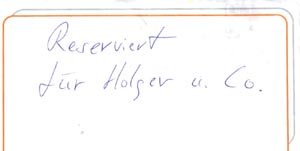 Reserviert
für Holger u. Co.